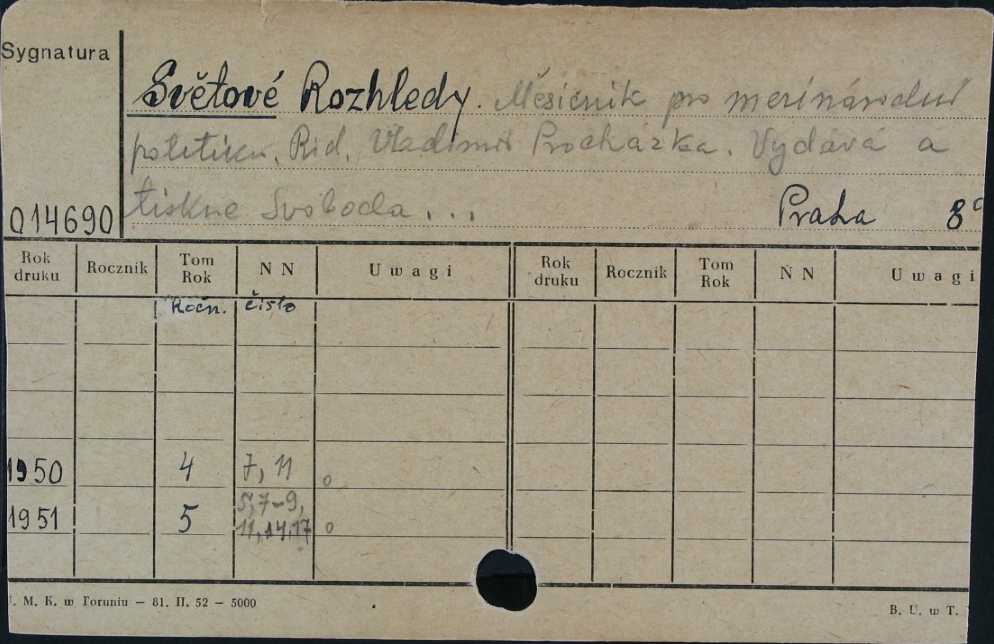 Sygnatura
Světové Rozhledy. Měsíčník pro mezinárodní
politiku. Řid. Vladimír Procházka. Vydává a
tiskne Svoboda...
Praha 8°
014690
Rok druku Rocznik Tom Rok N N Uwagi Rok druku Rocznik Tom Rok N N Uwagi
Ročn. číslo
1950 4 7, 11 o
1951 5 5, 7-9, 11, 14, 17 o
. M. K. w Toruniu — 81. II. 52 — 5000
B. U. w T.